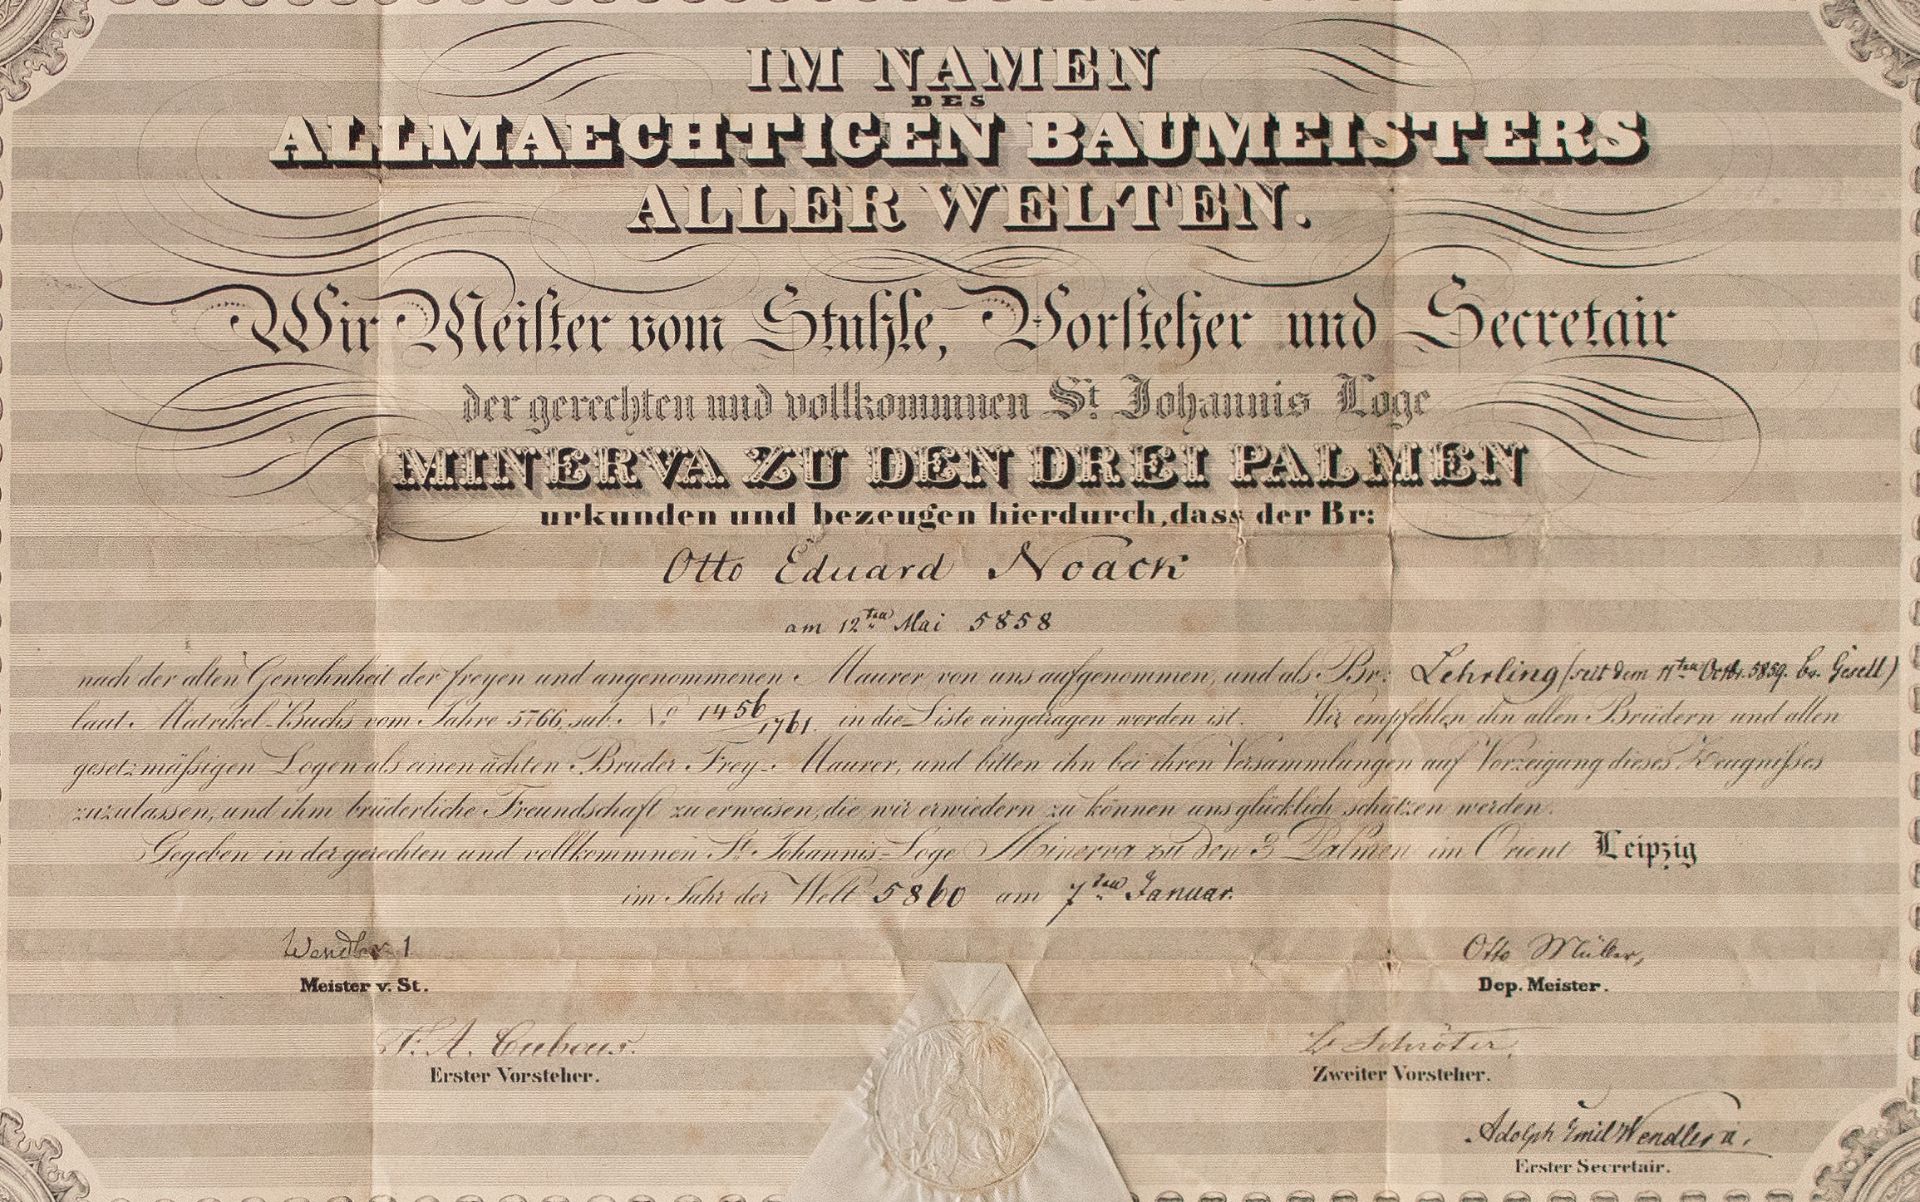 IM NAMEN
DES
ALLMAECHTIGEN BAUMEISTERS
ALLER WELTEN.
Wir Meister vom Stuhle, Vorsteher und Secretair
der gerechten und vollkommnen St. Johannis Loge
MINERVA ZU DEN DREI PALMEN
urkunden und bezeugen hierdurch, dass der Br:
Otto Eduard Noack
am 12ten Mai 5858
nach der alten Gewohnheit der freyen und angenommenen Maurer von uns aufgenommen, und als Br: Lehrling (seit dem 11ten Octbr. 5859. br. Gesell)
laut Matrikel-Buchs vom Jahre 5766, sub. No 1456/1761. in die Liste eingetragen worden ist. Wir empfehlen ihn allen Brüdern und allen
gesetzmäßigen Logen als einen ächten Bruder Frey-Maurer, und bitten ihn bei ihren Versammlungen auf Vorzeigung dieses Zeugnißes
zuzulassen, und ihm brüderliche Freundschaft zu erweisen, die wir erwiedern zu können uns glücklich schätzen werden.
Gegeben in der gerechten und vollkommnen St. Johannis-Loge Minerva zu den 3 Palmen im Orient Leipzig
im Jahr der Welt 5860 am 7ten Januar.
Wendler I
Otto Müller,
Meister v. St.
Dep. Meister.
Schröter
Erster Vorsteher.
Zweiter Vorsteher.
Adolph Emil Wendler II.
Erster Secretair.